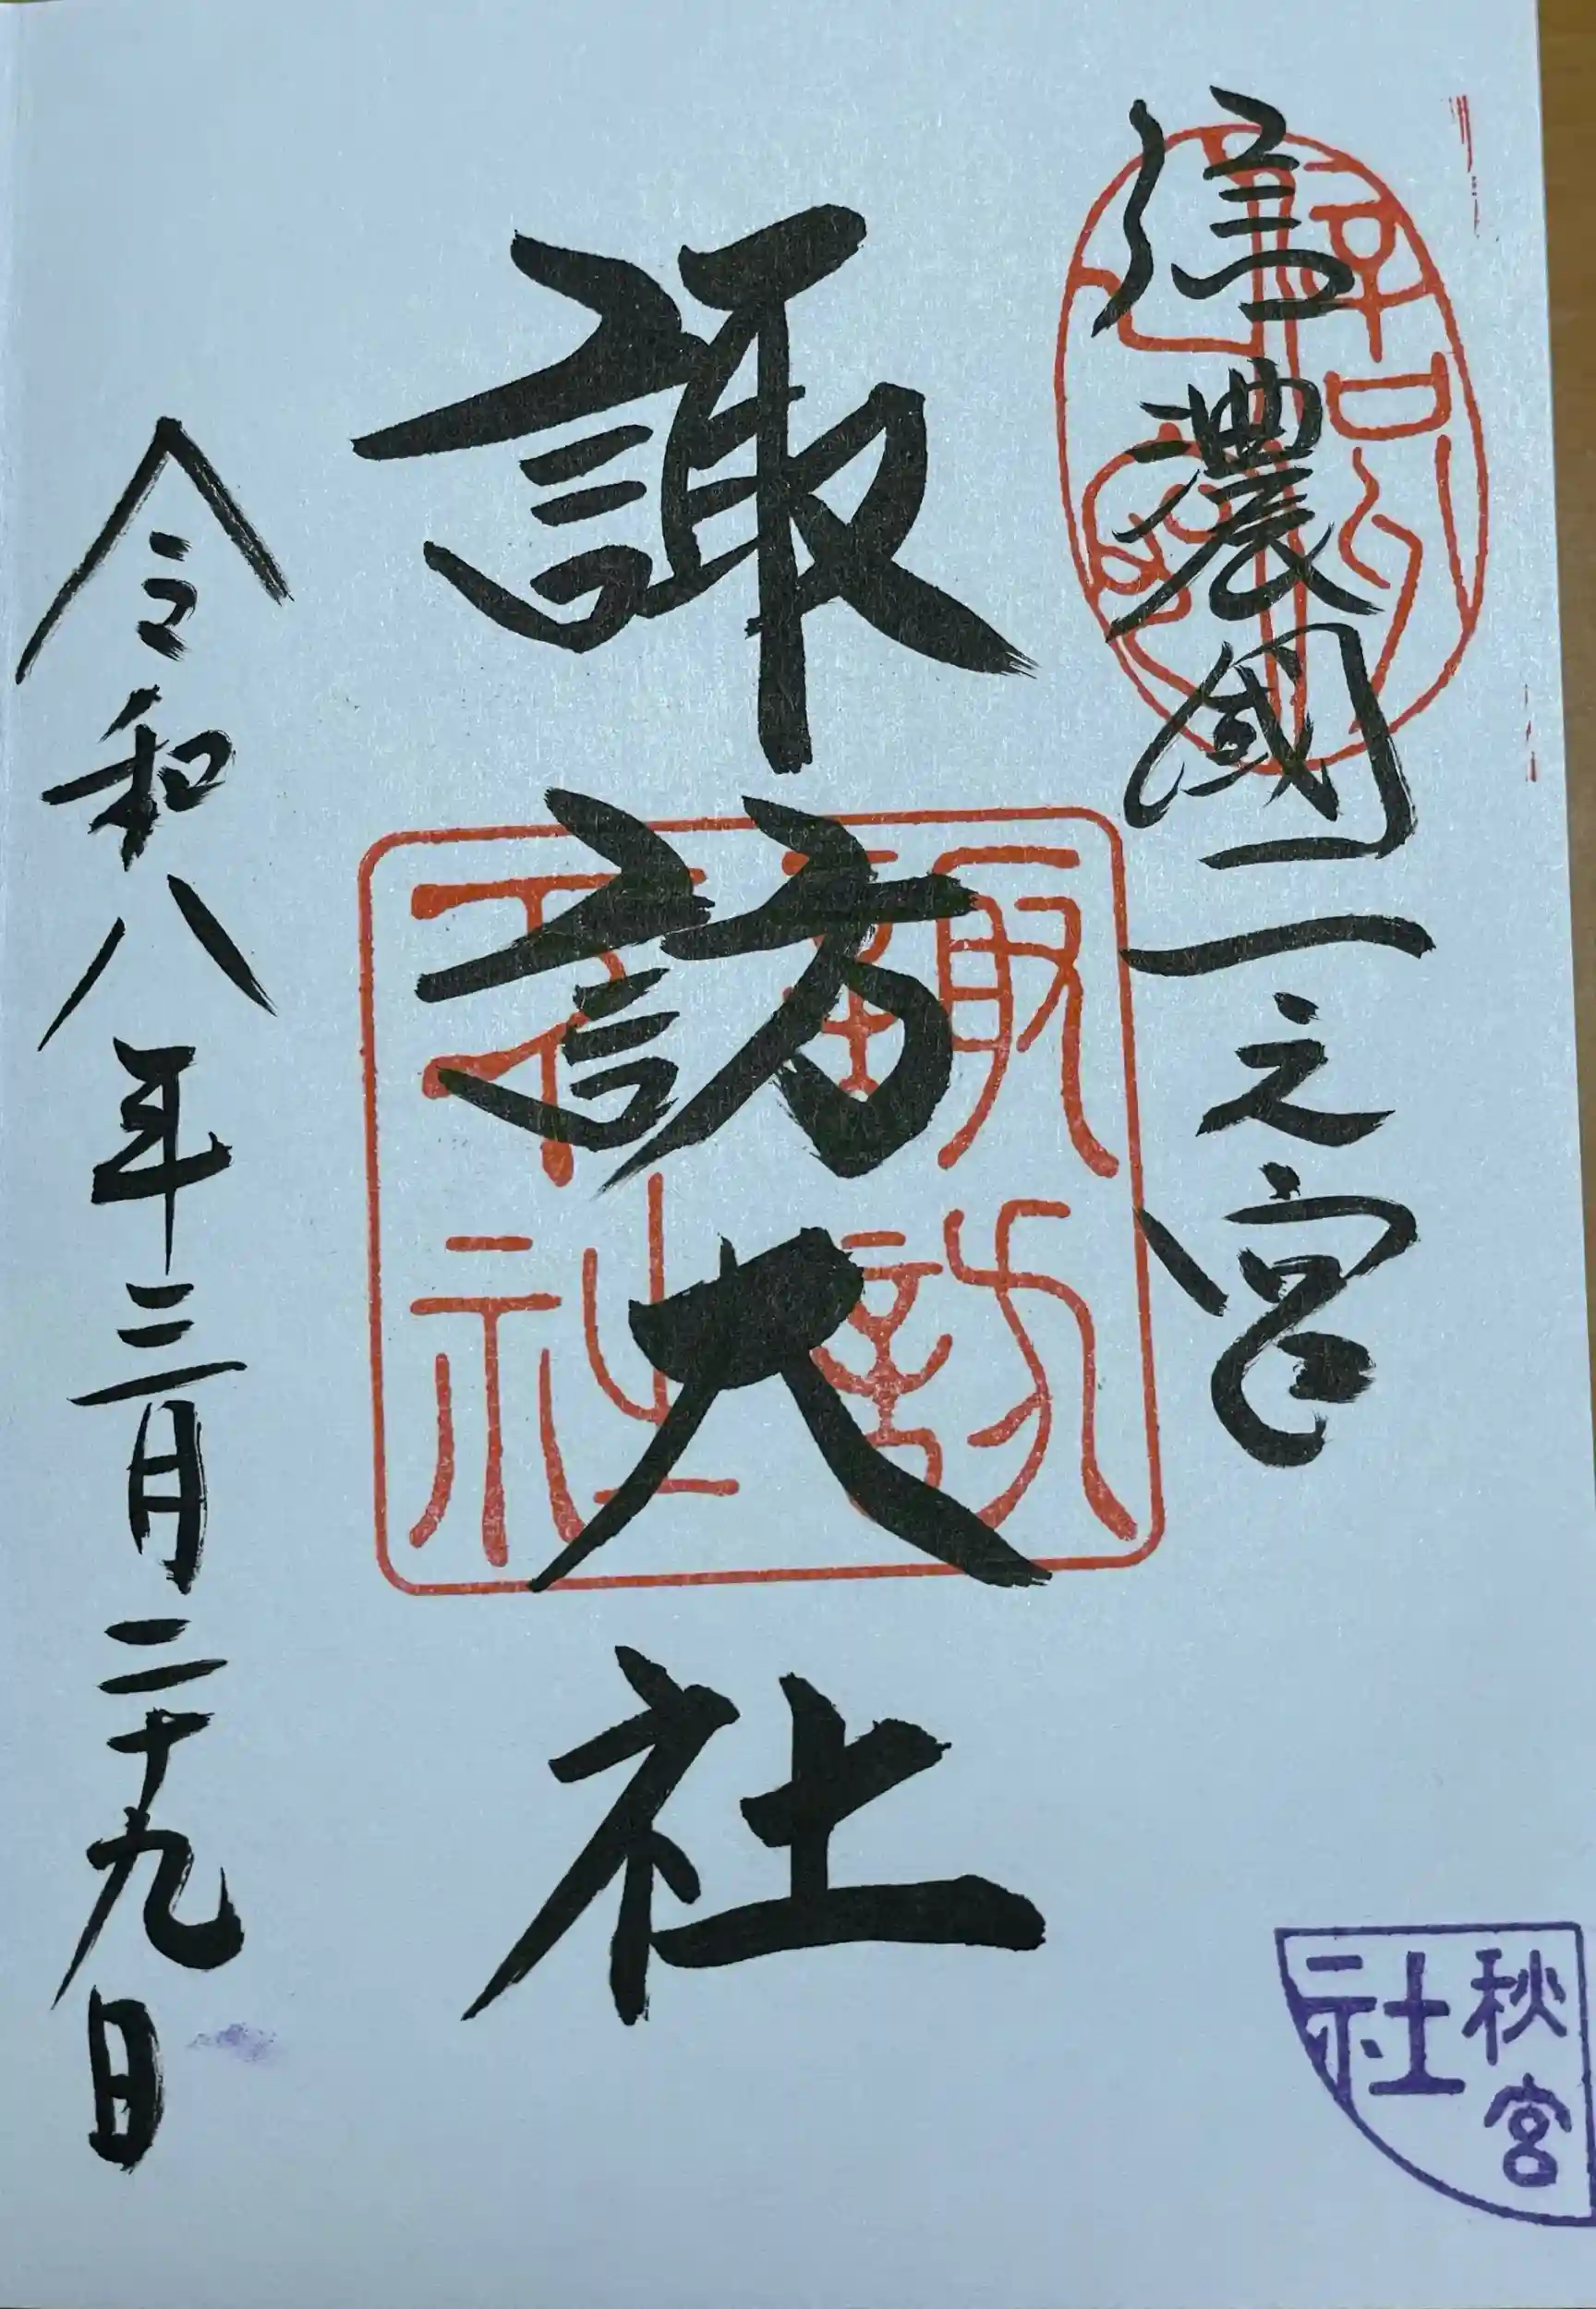 信濃國一之宮
諏訪大社
令和八年三月二十九日
諏訪
大社
秋宮
社